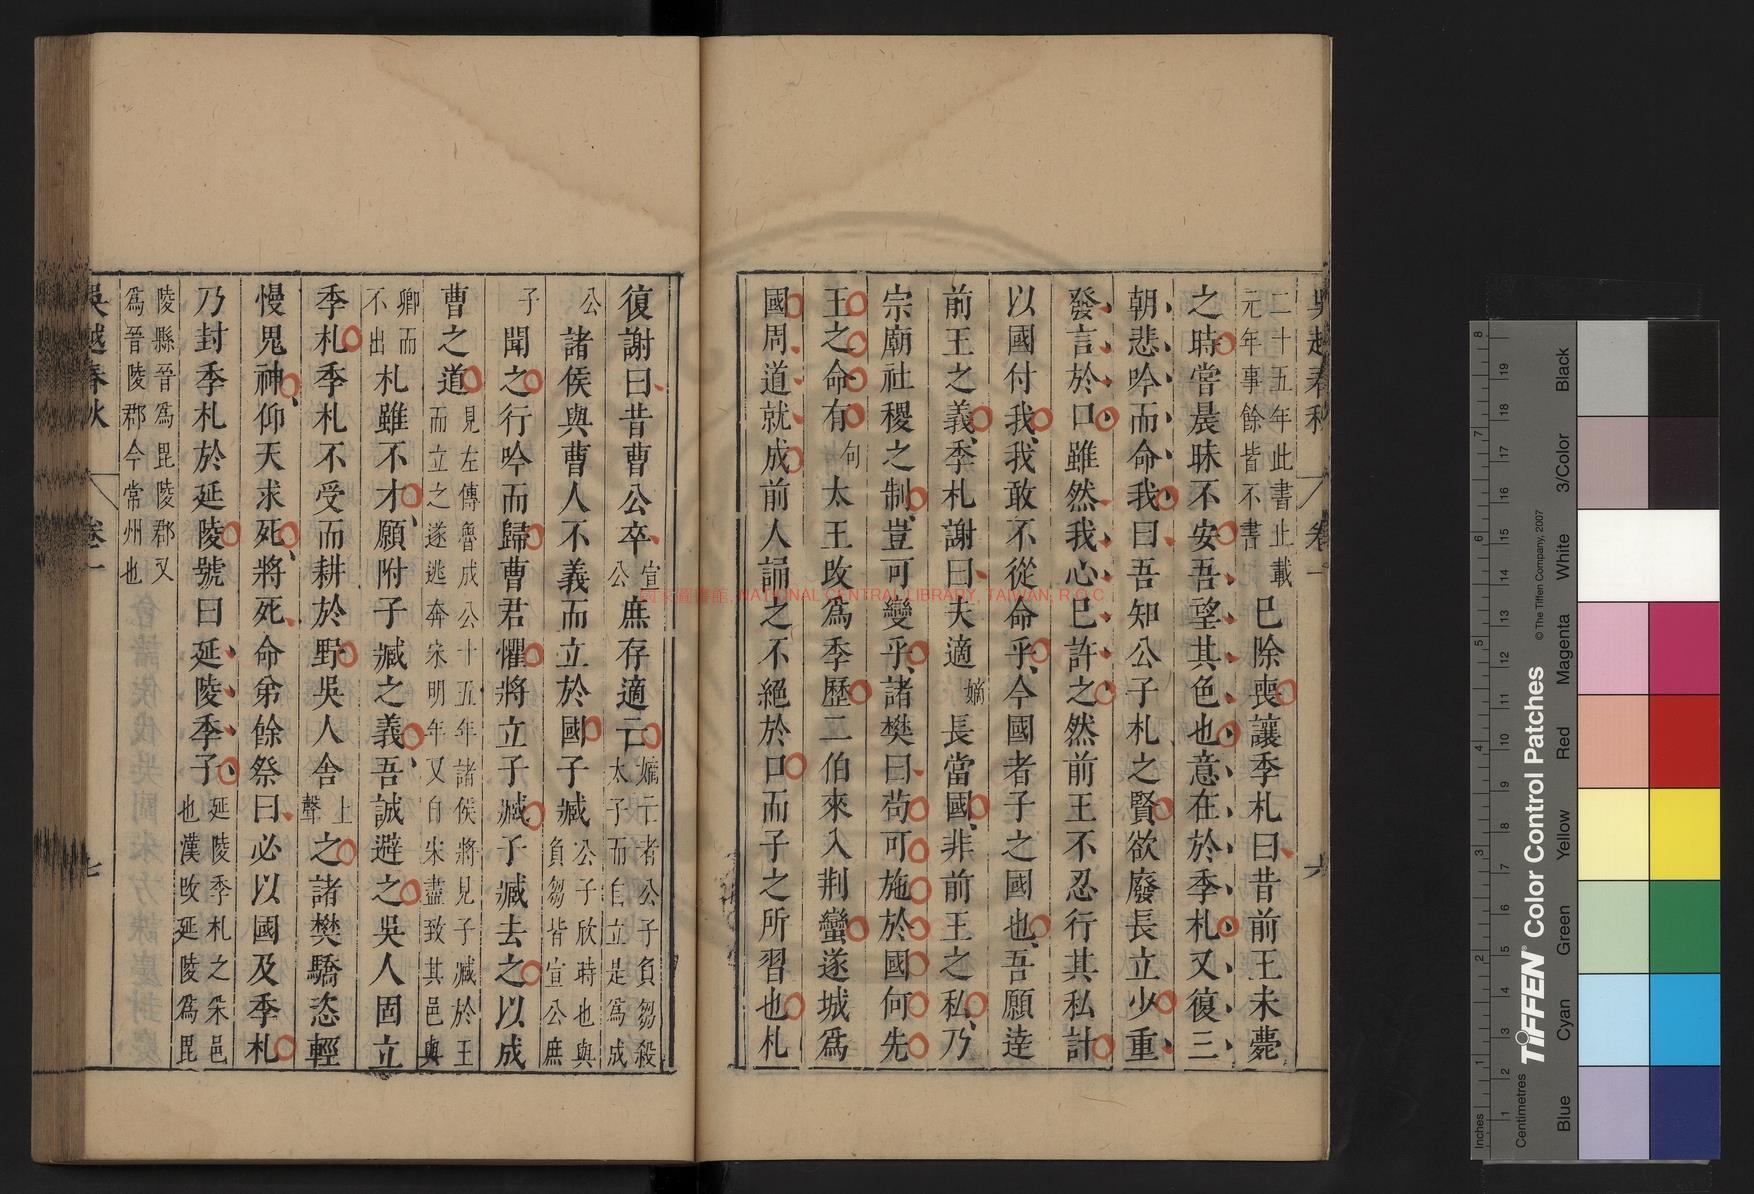 吳越春秋 卷一 六
二十五年此書止載元年事餘皆不書已除喪讓季札曰昔前王未薨
之時嘗晨昧不安吾望其色也意在於季札又復三
朝悲吟而命我曰吾知公子札之賢欲廢長立少重
發言於口雖然我心已許之然前王不忍行其私計
以國付我我敢不從命乎今國者子之國也吾願達
前王之義季札謝曰夫適嫡長當國非前王之私乃
宗廟社稷之制豈可變乎諸樊曰苟可施於國何先
王之命有句太王改為季歷二伯來入荆蠻遂城為
國周道就成前人誦之不絕於口而子之所習也札
復謝曰昔曹公卒宣公庶存適亡嫡亡者公子負芻殺太子而自立是為成
公諸侯與曹人不義而立於國子臧公子欣時也與負芻皆宣公庶
子聞之行吟而歸曹君懼將立子臧子臧去之以成
曹之道見左傳魯成公十五年諸侯將見子臧於王而立之遂逃奔宋明年又自宋盡致其邑與
卿而不出札雖不才願附子臧之義吾誠避之吳人固立
季札季札不受而耕於野吳人舍上聲之諸樊驕恣輕
慢鬼神仰天求死將死命弟餘祭曰必以國及季札
乃封季札於延陵號曰延陵季子延陵季札之采邑也漢改延陵為毘
陵縣晉為毘陵郡又為晉陵郡今常州也
吳越春秋 卷一 七
國家圖書館, NATIONAL CENTRAL LIBRARY, TAIWAN, R.O.C
TIFFEN® Color Control Patches
© The Tiffen Company, 2007
Inches
Centimetres
Blue Cyan Green Yellow Red Magenta White 3/Color Black